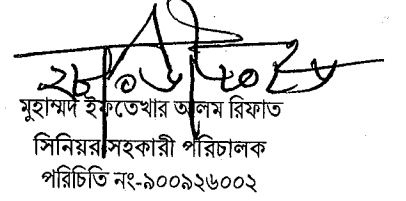 মুহাম্মদ ইফতেখার আলম রিফাত
সিনিয়র সহকারী পরিচালক
পরিচিতি নং-৯০০৯২৬০০২